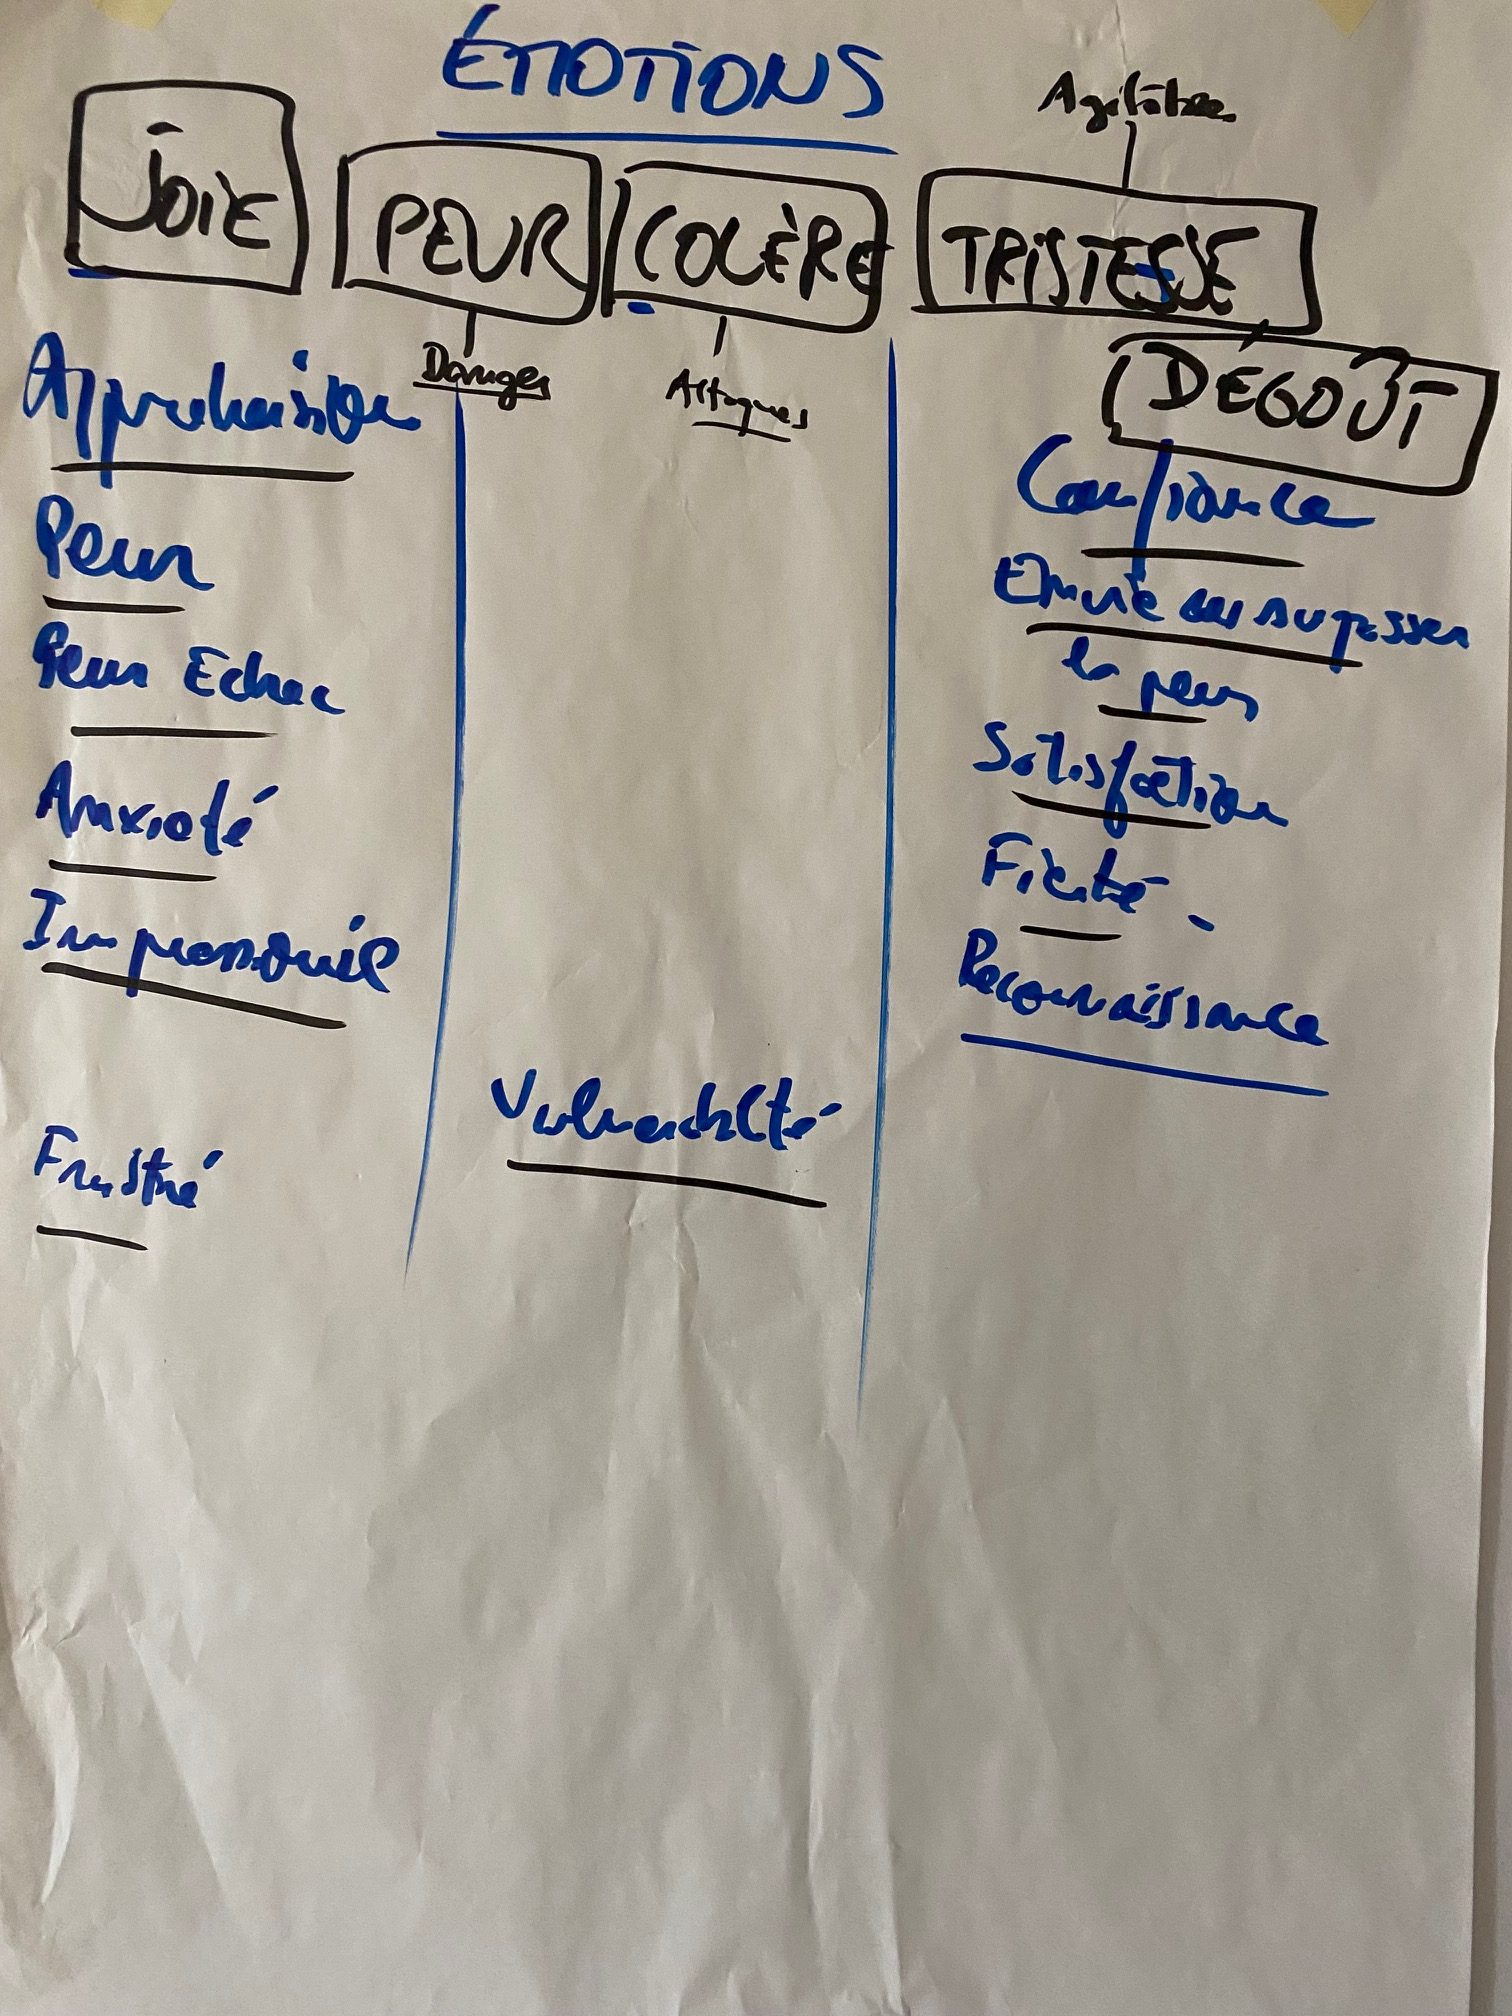 ÉMOTIONS
JOIE
PEUR
COLÈRE
TRISTESSE
DÉGOÛT
Danger
Attaques
Appréhension
Peur
Peur Echec
Anxiété
Impressionné
Frustré
Vulnerabilité
Confiance
Envie de surpasser
la peur
Satisfaction
Fierté
Reconnaissance